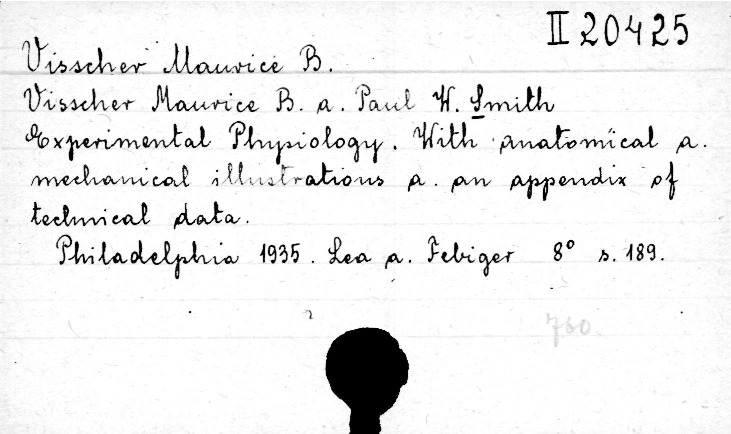 II 20425
Visscher Maurice B.
Visscher Maurice B. a. Paul W. Smith
Experimental Physiology. With anatomical a.
mechanical illustrations a. an appendix of
technical data.
Philadelphia 1935. Lea a. Febiger 8° s. 189.
760.